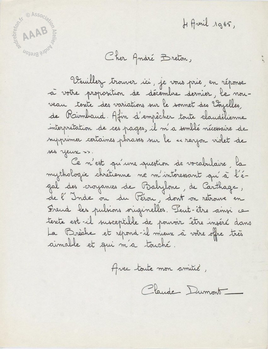 4 Avril 1965,
Cher André Breton,
Veuillez trouver ici, je vous prie, en réponse
à votre proposition de décembre dernier, le nou-
veau texte des variations sur le sonnet des Voyelles,
de Rimbaud. Afin d'empêcher toute claudélienne
interprétation de ces pages, il m'a semblé nécessaire de
supprimer certaines phrases sur le "rayon violet de
ses yeux".
Ce n'est qu'une question de vocabulaire la
mythologie chrétienne ne m'intéressant qu'à l'é-
gal des croyances de Babylone, de Carthage,
de l'Inde ou du Pérou, dont on retrouve en
Freud les pulsions originelles. Peut-être ainsi ce
texte est-il susceptible de pouvoir être inséré dans
La Brèche et répond-il mieux à votre offre très
aimable et qui m'a touché.
Avec toute mon amitié.
Claude Dumont
AAAB